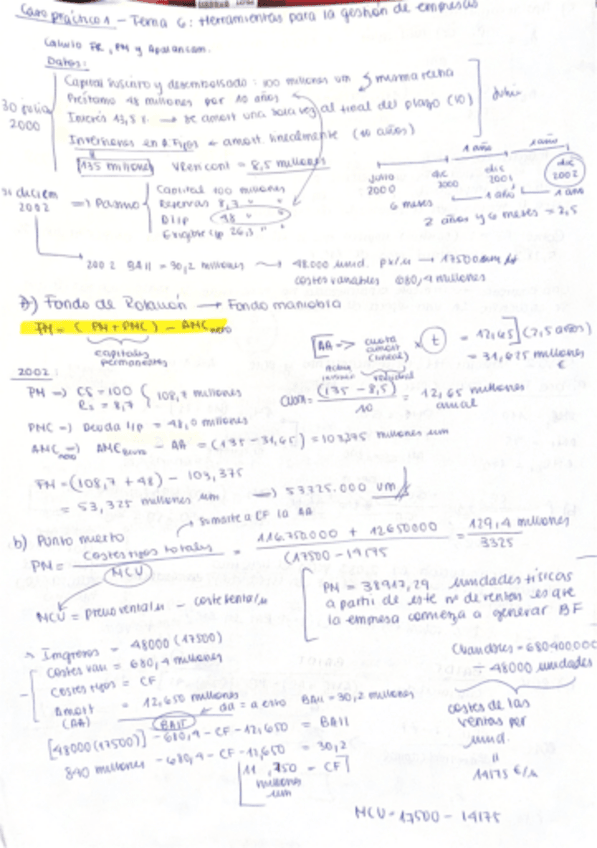 Caso práctico 1 - Tema 6: Herramientas para la gestión de empresas
Cálculo FR, PM y Apalancam.
Datos:
30 julio 2000
Capital suscrito y desembolsado: 100 millones um misma fecha
Préstamo 48 millones por 10 años
Interés 13,5 % → se amort una sola vez al final del plazo (10)
Inversiones en A.Fijos ← amort. linealmente (10 años)
135 millones VResi cont = 8,5 millones
1 año 1 año
junio 2000 dic 2000 dic 2001 dic 2002
6 meses 1 año 1 año
2 años y 6 meses = 2,5
31 diciem 2002 => Pasivo
Capital 100 millones
Reservas 8,7 " "
D l/p 48 " "
Exigible c/p 26,3 " "
2002 BAII = 30,2 millones → 48.000 unid. pv/u → 17500 um
costes variables 680,4 millones
a) Fondo de Rotación → Fondo maniobra
FM = (PN + PNC) - ANC neto
capitales permanentes
AA → cuota amort (lineal) × t = 12,65] (2,5 años)
= 31,625 millones €
2002:
PN => CS = 100
Rs = 8,7
108,7 millones
residual
cuota = (135 - 8,5) / 10 = 12,65 millones anual
PNC => Deuda l/p = 48,0 millones
ANC neto => ANC Bruto - AA = (135 - 31,65) = 103,375 millones um
FM = (108,7 + 48) - 103,375
= 53,325 millones um → 53325.000 um
b) Punto muerto
sumarle a CF la AA
PM = costes fijos totales / MCU = 116.750.000 + 12650000 / (17500 - 14175 = 129,4 millones / 3325
MCU = precio venta/u - coste venta/u
PM = 38917,29 unidades físicas
a partir de este nº de ventas es que
la empresa comienza a generar BF
Ingresos = 48000 (17500)
Costes vari = 680,4 millones
Costes fijos = CF
Amort (AA) = 12,650 millones
BAII da = a esto BAII = 30,2 millones
[48000(17500)] - 680,4 - CF - 12,650 = BAII
840 millones - 680,4 - CF - 12,650 = 30,2
millones um
Cvariables = 680400000
÷ 48000 unidades
costes de las ventas por unid.
14175 €/u
MCU = 17500 - 14175